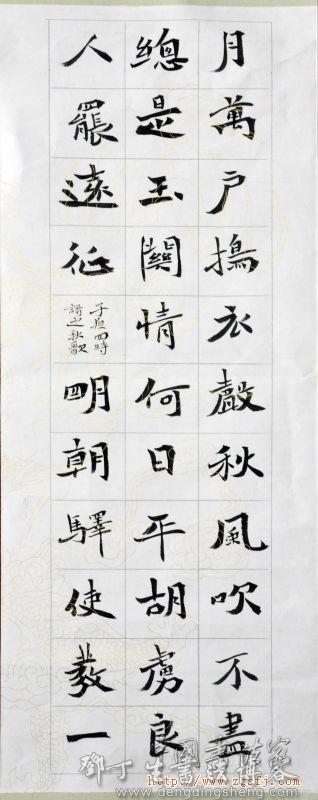 月萬户搗衣聲秋風吹不盡
總是玉關情何日平胡虜良
人罷遠征
子夜四時
謌之秋歌
明朝驛使發一
鄧丁生書畫博客
www.dengdingsheng.com